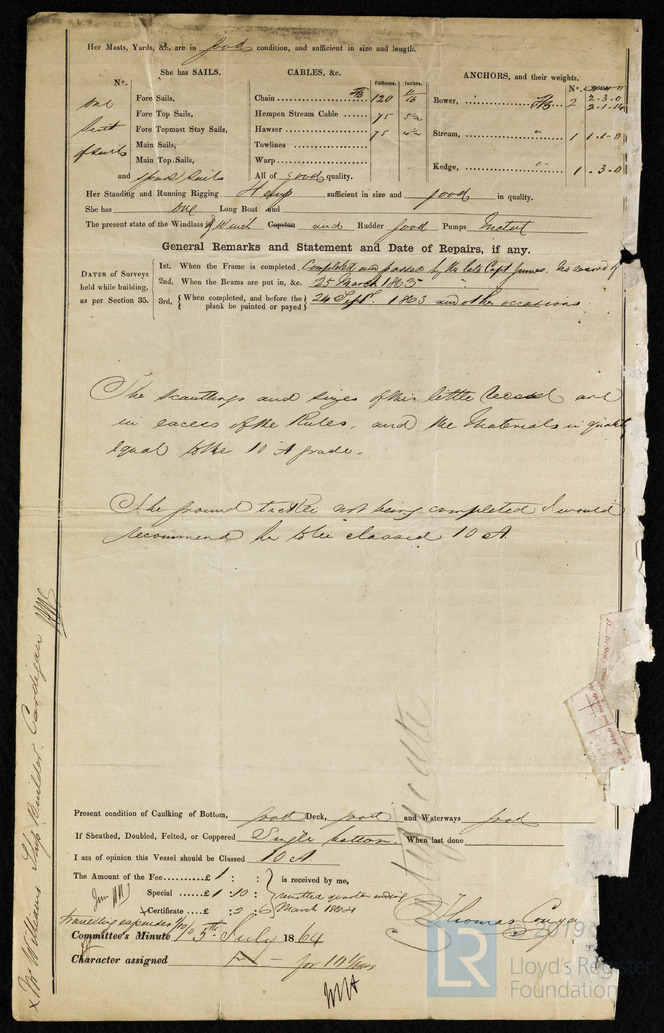 Her Masts, Yards, &c. are in good condition, and sufficient in size and length.
She has SAILS.
CABLES, &c.
Fathoms. Inches.
ANCHORS, and their weights.
N°.
N°.
one
Suit
of sails
and spare sails
Fore Sails,
Fore Top Sails,
Fore Topmast Stay Sails,
Main Sails,
Main Top Sails,
Chain 120
Hempen Stream Cable 75
Hawser 75
Towlines
Warp
All of good quality.
Bower, 2 2.3.0
2.1.14
Stream, 1 1.1.0
Kedge, 1 .3.0
Her Standing and Running Rigging Hemp sufficient in size and good in quality.
She has one Long Boat and
The present state of the Windlass is Winch Capstan and Rudder good Pumps Metal
General Remarks and Statement and Date of Repairs, if any.
DATES of Surveys held while building, as per Section 35.
1st. When the Frame is completed, Completed and passed by the late Capt James. No record of
2nd. When the Beams are put in, &c. 25 March 1863 "
3rd. { When completed, and before the plank be painted or payed } 24 Sept. 1863 and other occasions
The scantlings and sizes of this little Vessel are
in excess of the Rules, and the Materials in quality
equal to the 10 A grade.
The ground tackle not being completed I would
recommend her to be classed 10 A
Mr Williams Ship Builder. Cardigan
Present condition of Caulking of Bottom, good Deck, good and Waterways good
If Sheathed, Doubled, Felted, or Coppered Single bottom. When last done
I am of opinion this Vessel should be Classed 10 A
The Amount of the Fee £ 1 : : is received by me,
Special £ 1 : 10 : remitted quarter ending
Certificate £ : 2 : 6 March 1864
travelling expenses
Thomas Congdon
Committee's Minute 5th July 1864
Character assigned A — for 10 Years
© 2019
LR
Lloyd's Register
Foundation